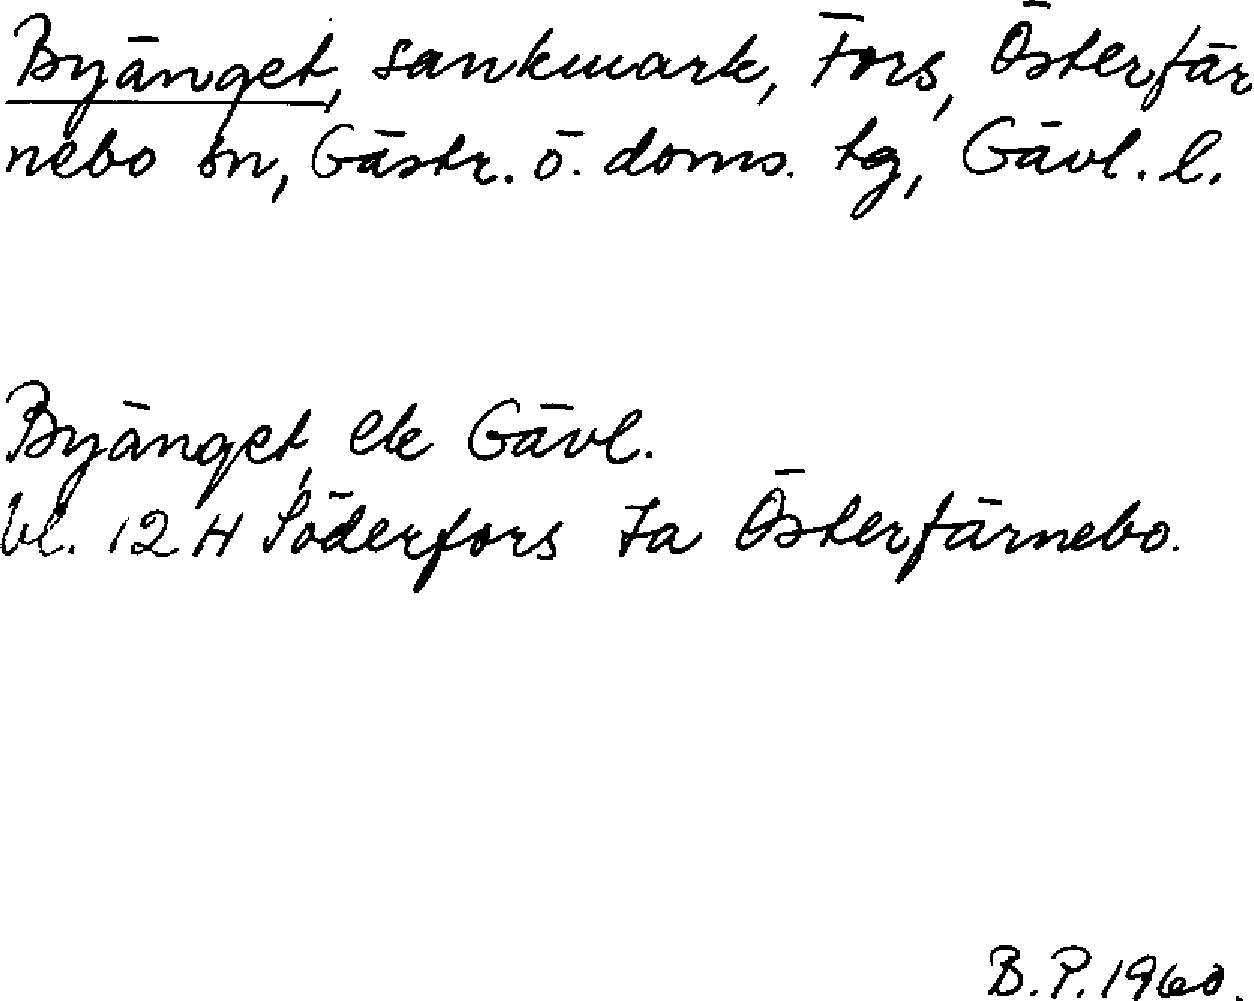 Byänget, sankmark, Fors, Österfär
nebo sn, Gästr. ö. doms. tg, Gävl. l.
Byänget, ek Gävl.
bl. 12 H Söderfors Ja Österfärnebo.
B.P. 1960.